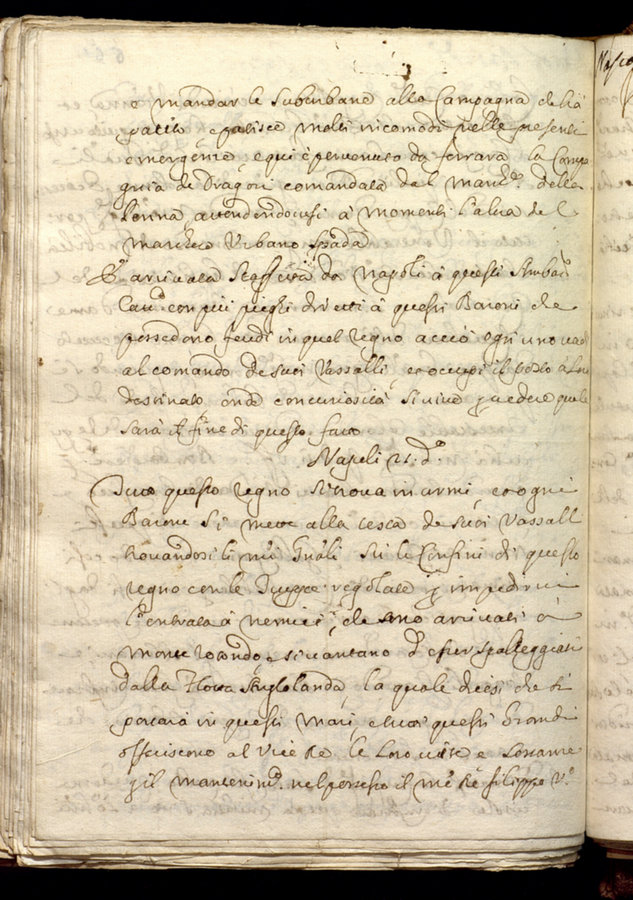 e mandar le suburbane alla Campagna che hà
patito, e patisce molti incomodi nelle presenti
emergenze, e qui è pervenuto da ferrara la Compa
gnia di Dragoni comandata dal March.e della
Penna attendendovisi à momenti l'altra del
Marchese Urbano Spada
È arrivata Staffetta da Napoli à questi Ambas.
con più pieghi diretti à questi Baroni che
possedono feudi in quel regno acciò ogn'uno vadi
al comando de suoi Vassalli, et occupi il posto à loro
destinato, onde con curiosità si vive p vedere quale
sarà il fine di questo fatto
Napoli 21. d.o
Tutto questo regno si trova in armi, et ogni
Barone si mette alla testa de suoi Vassall
trovandosi li n̄ri Gnāli sù li Confini di questo
regno con le Truppe regolate p impedirvi
l'entrata à nemici, che sono arrivati à
Monte rotondo e si vantano d'esser spalleggiati
dalla Flotta Anglolanda, la quale dicesi che si
portarà in questi mari, e tutti questi Grandi
offeriscono al Vice Re le loro vite e sostanze
p il mantenim.o nel possesso il n̄ro Rè filippo V.o